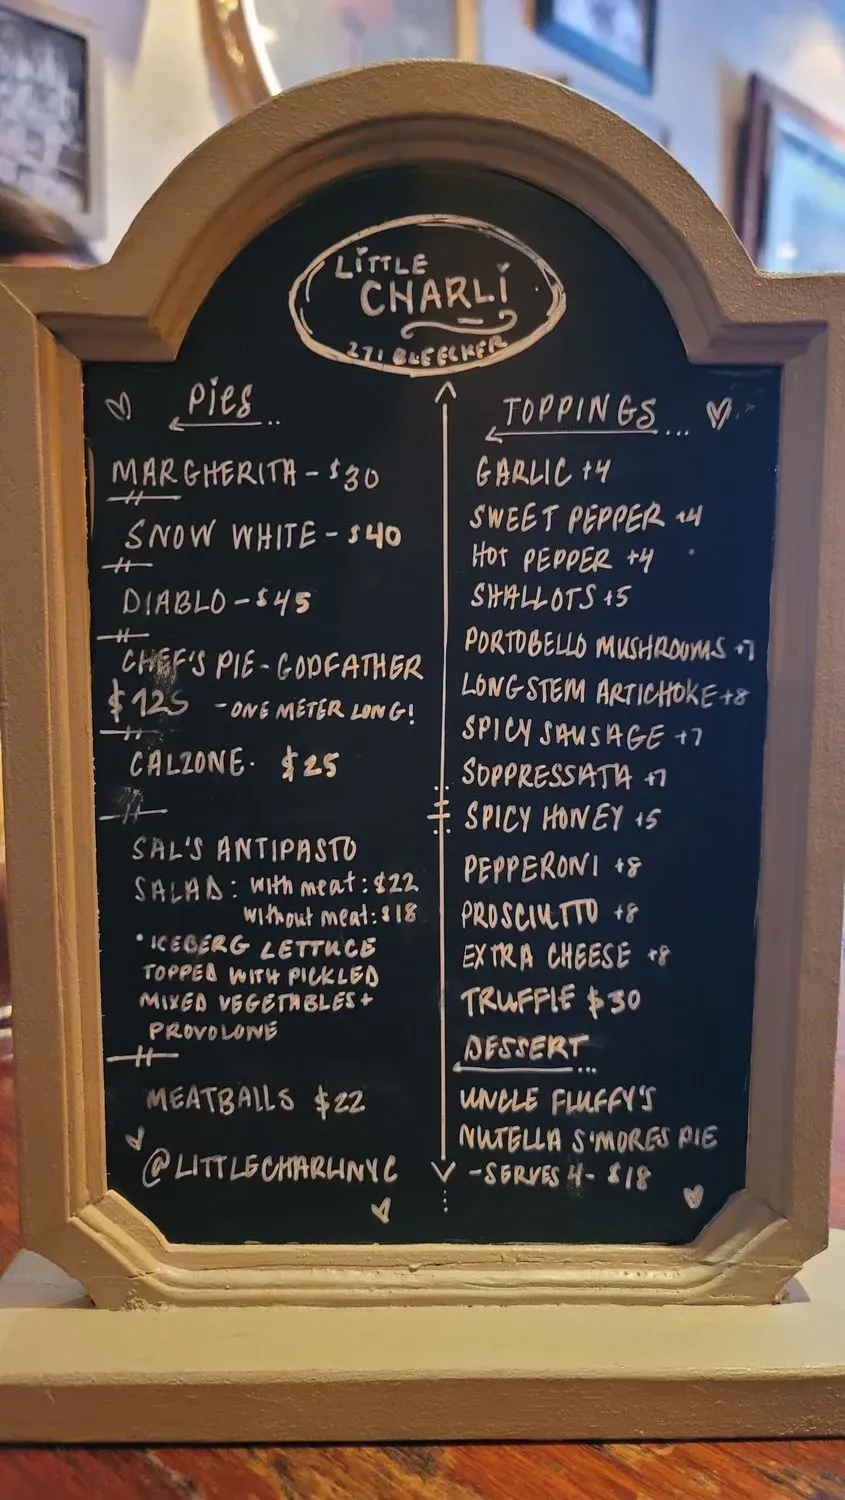 LITTLE
CHARLI
271 BLEECKER
PIES
MARGHERITA - $30
SNOW WHITE - $40
DIABLO - $45
CHEF'S PIE - GODFATHER
$125 - ONE METER LONG!
CALZONE. $25
SAL'S ANTIPASTO
SALAD: with meat: $22
without meat: $18
• ICEBERG LETTUCE
TOPPED WITH PICKLED
MIXED VEGETABLES +
PROVOLONE
MEATBALLS $22
@LITTLECHARLINYC
TOPPINGS
GARLIC +4
SWEET PEPPER +4
HOT PEPPER +4
SHALLOTS +5
PORTOBELLO MUSHROOMS +7
LONGSTEM ARTICHOKE +8
SPICY SAUSAGE +7
SOPPRESSATA +7
SPICY HONEY +5
PEPPERONI +8
PROSCIUTTO +8
EXTRA CHEESE +8
TRUFFLE $30
DESSERT
UNCLE FLUFFY'S
NUTELLA S'MORES PIE
- SERVES 4 - $18